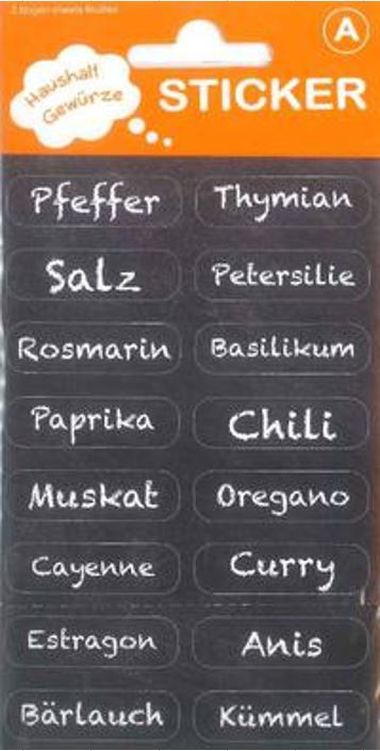 2 Bögen·sheets·feuilles
A
Haushalt
Gewürze
STICKER
Pfeffer Thymian
Salz Petersilie
Rosmarin Basilikum
Paprika Chili
Muskat Oregano
Cayenne Curry
Estragon Anis
Bärlauch Kümmel